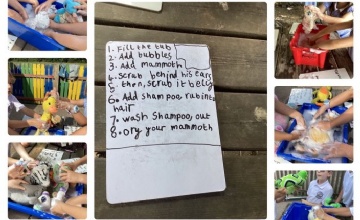 1. Fill the tub
2. Add bubbles
3. Add mammoth
4. Scrub behind his ears
5. then, scrub it bely
6. Add shampoo, rub into
hair
7. wash shampoo, out
8. dry your mammoth